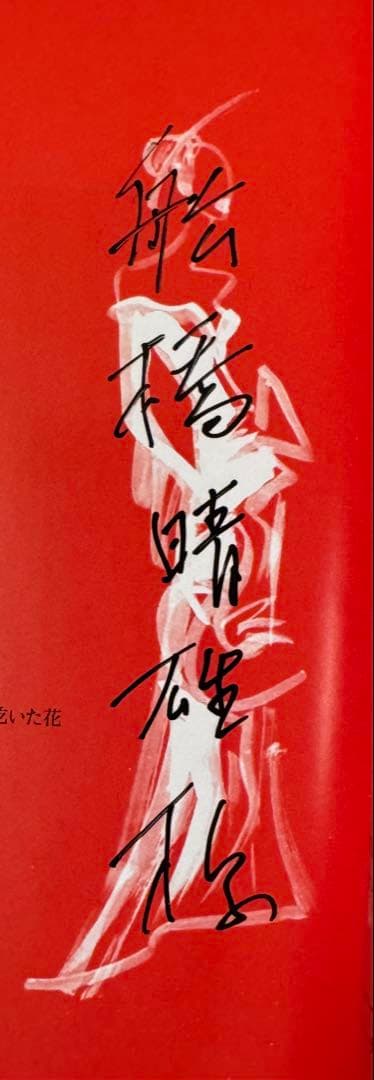 舩橋晴雄様
乾いた花